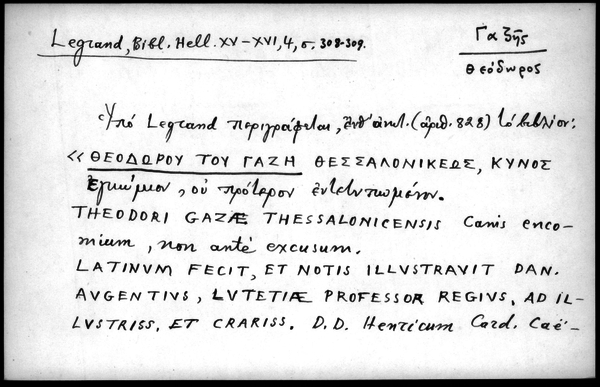 Legrand, Bibl. Hell. XV-XVI, 4, σ. 308-309.
Γαζῆς
Θεόδωρος
Ὑπό Legrand περιγράφεται, (ἀριθ. 828) τό βιβλίον:
«ΘΕΟΔΩΡΟΥ ΤΟΥ ΓΑΖΗ ΘΕΣΣΑΛΟΝΙΚΕΩΣ, ΚΥΝΟΣ
ἐγκώμιον, οὐ πρότερον ἐντετυπωμένον.
THEODORI GAZÆ THESSALONICENSIS Canis enco-
mium, non antè excusum.
LATINVM FECIT, ET NOTIS ILLVSTRAVIT DAN.
AVGENTIVS, LVTETIÆ PROFESSOR REGIVS, AD IL-
LVSTRISS. ET CRARISS. D.D. Henricum Card. Caë-